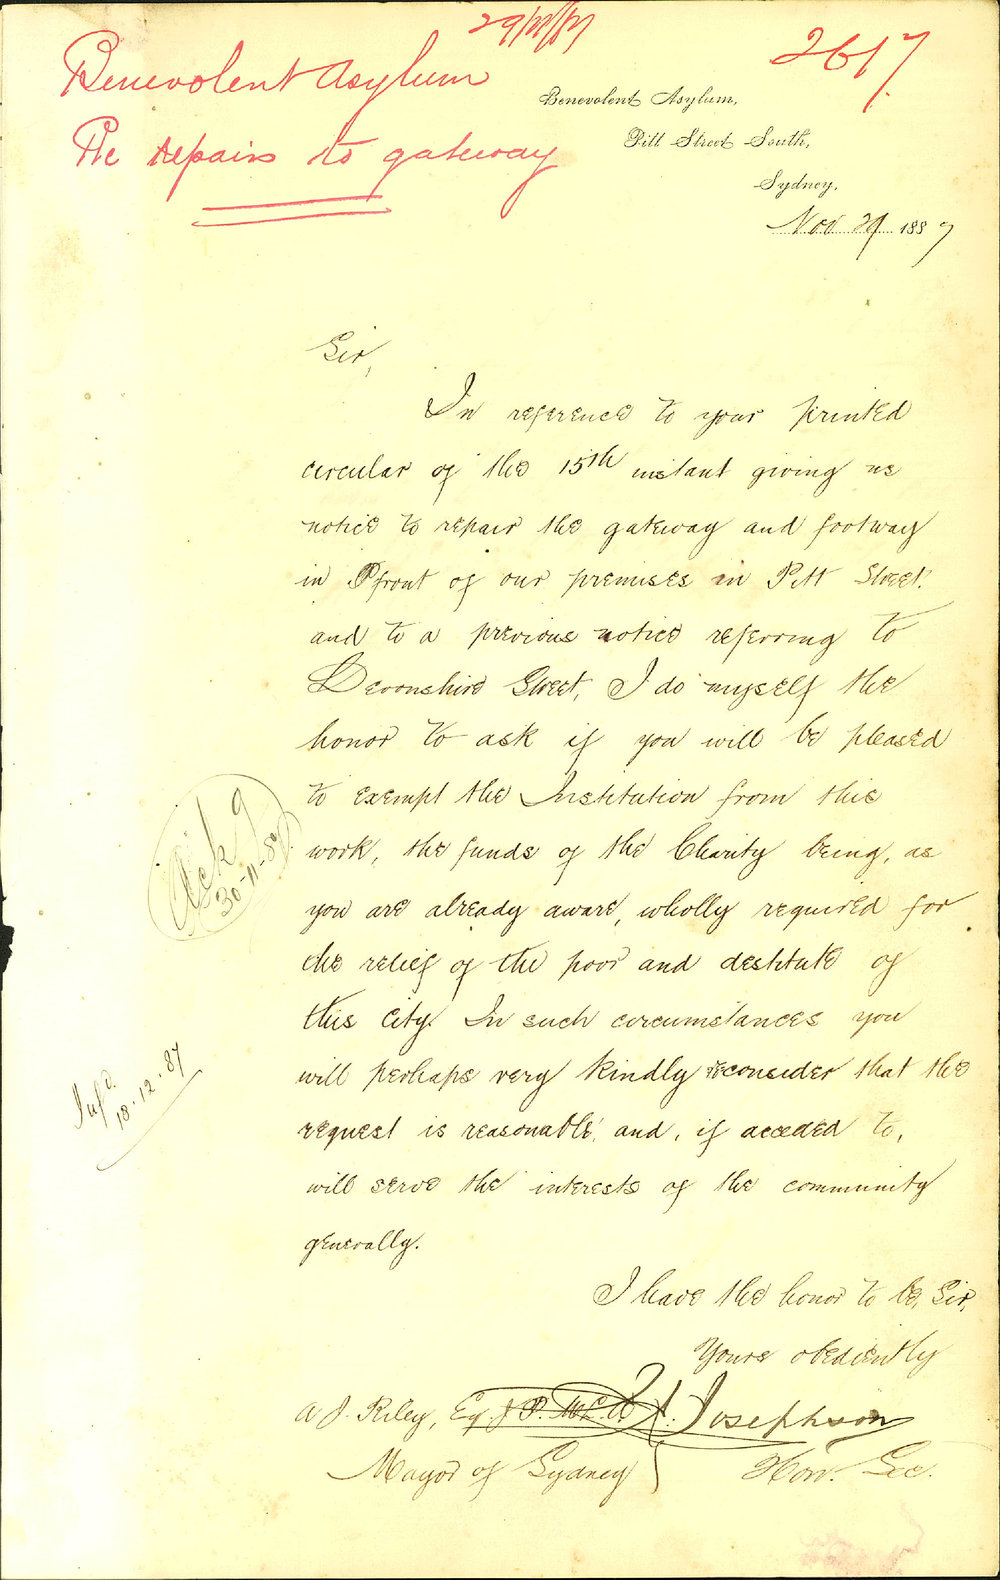 29/11/87
2617
Benevolent Asylum
Re repairs to gateway
Benevolent Asylum,
Pitt Street South,
Sydney.
Nov 29 1887
Sir,
In reference to your printed
circular of the 15th instant giving us
notice to repair the gateway and footway
in front of our premises in Pitt Street.
and to a previous notice referring to
Devonshire Street, I do myself the
honor to ask if you will be pleased
to exempt the Institution from this
work, the funds of the Charity being, as
you are already aware, wholly required for
the relief of the poor and destitute of
this City. In such circumstances you
will perhaps very kindly reconsider that the
request is reasonable, and, if acceded to,
will serve the interests of the community
generally.
I have the honor to be, Sir,
Yours obediently
A J. Riley, Esq. J.P. M.L.A. J. Josephson
Mayor of Sydney Hon. Sec.
Ackg
30-11-87
Infd.
18.12.87